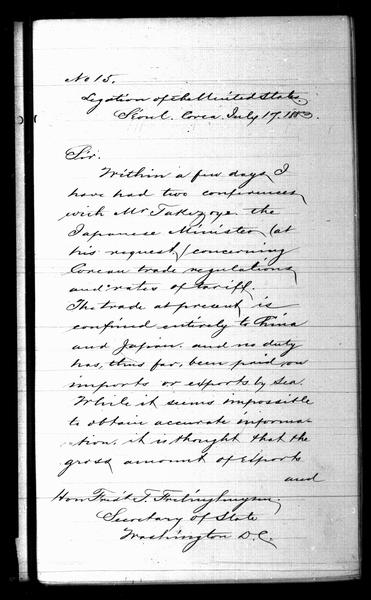 No 15.
Legation of the United States
Seoul. Corea July 17. 1883.
Sir.
Within a few days I
have had two conferences
with Mr Takezoye the
Japanese Minister (at
his request) concerning
Corean trade regulations
and rates of tariff.
The trade at present is
confined entirely to China
and Japan. and no duty
has, thus far, been paid, on
imports or exports by sea.
While it seems impossible
to obtain accurate informa-
tion, it is thought that the
gross amount of exports
and
Hon Fredk T. Frelinghuysen.
Secretary of State
Washington D.C.